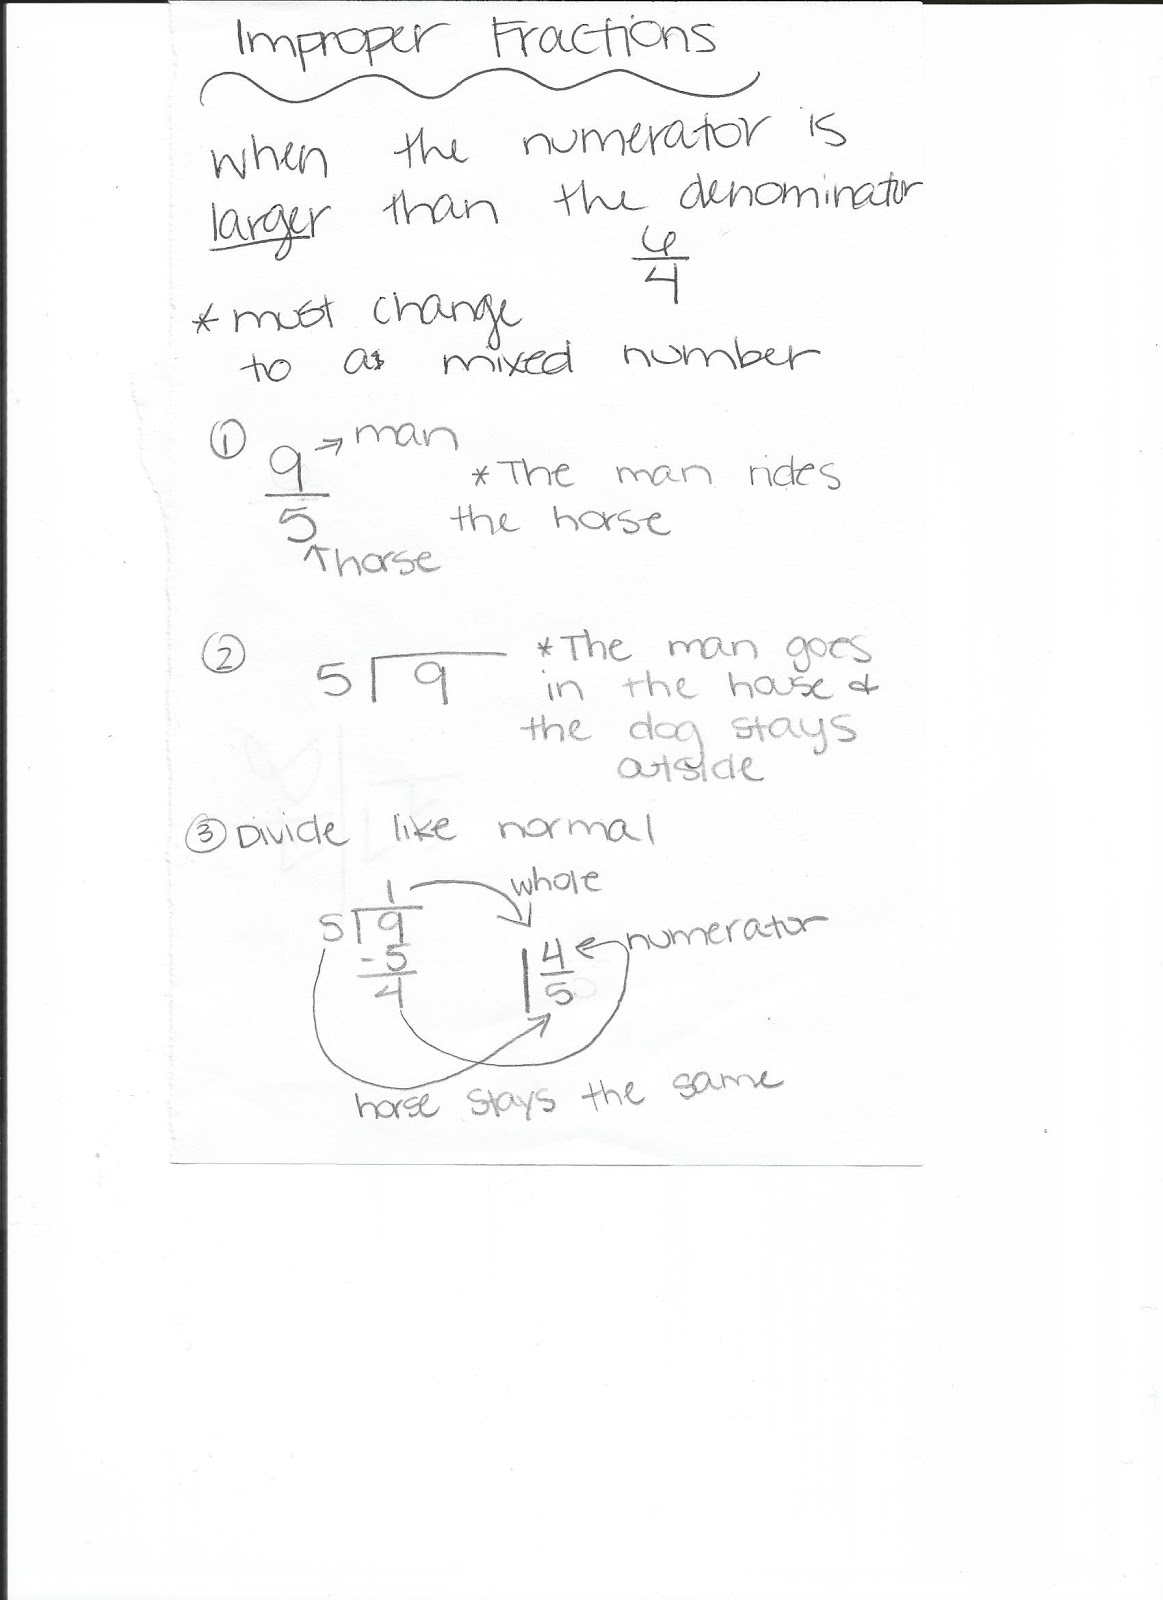 Improper Fractions
when the numerator is
larger than the denominator
6
4
* must change
to a mixed number
① 9 → man
5
↑ horse
* The man rides
the horse
② 5⟌9
* The man goes
in the house &
the dog stays
outside
③ Divide like normal
1 whole
5⟌9
- 5
4
1 4/5 ← numerator
horse stays the same